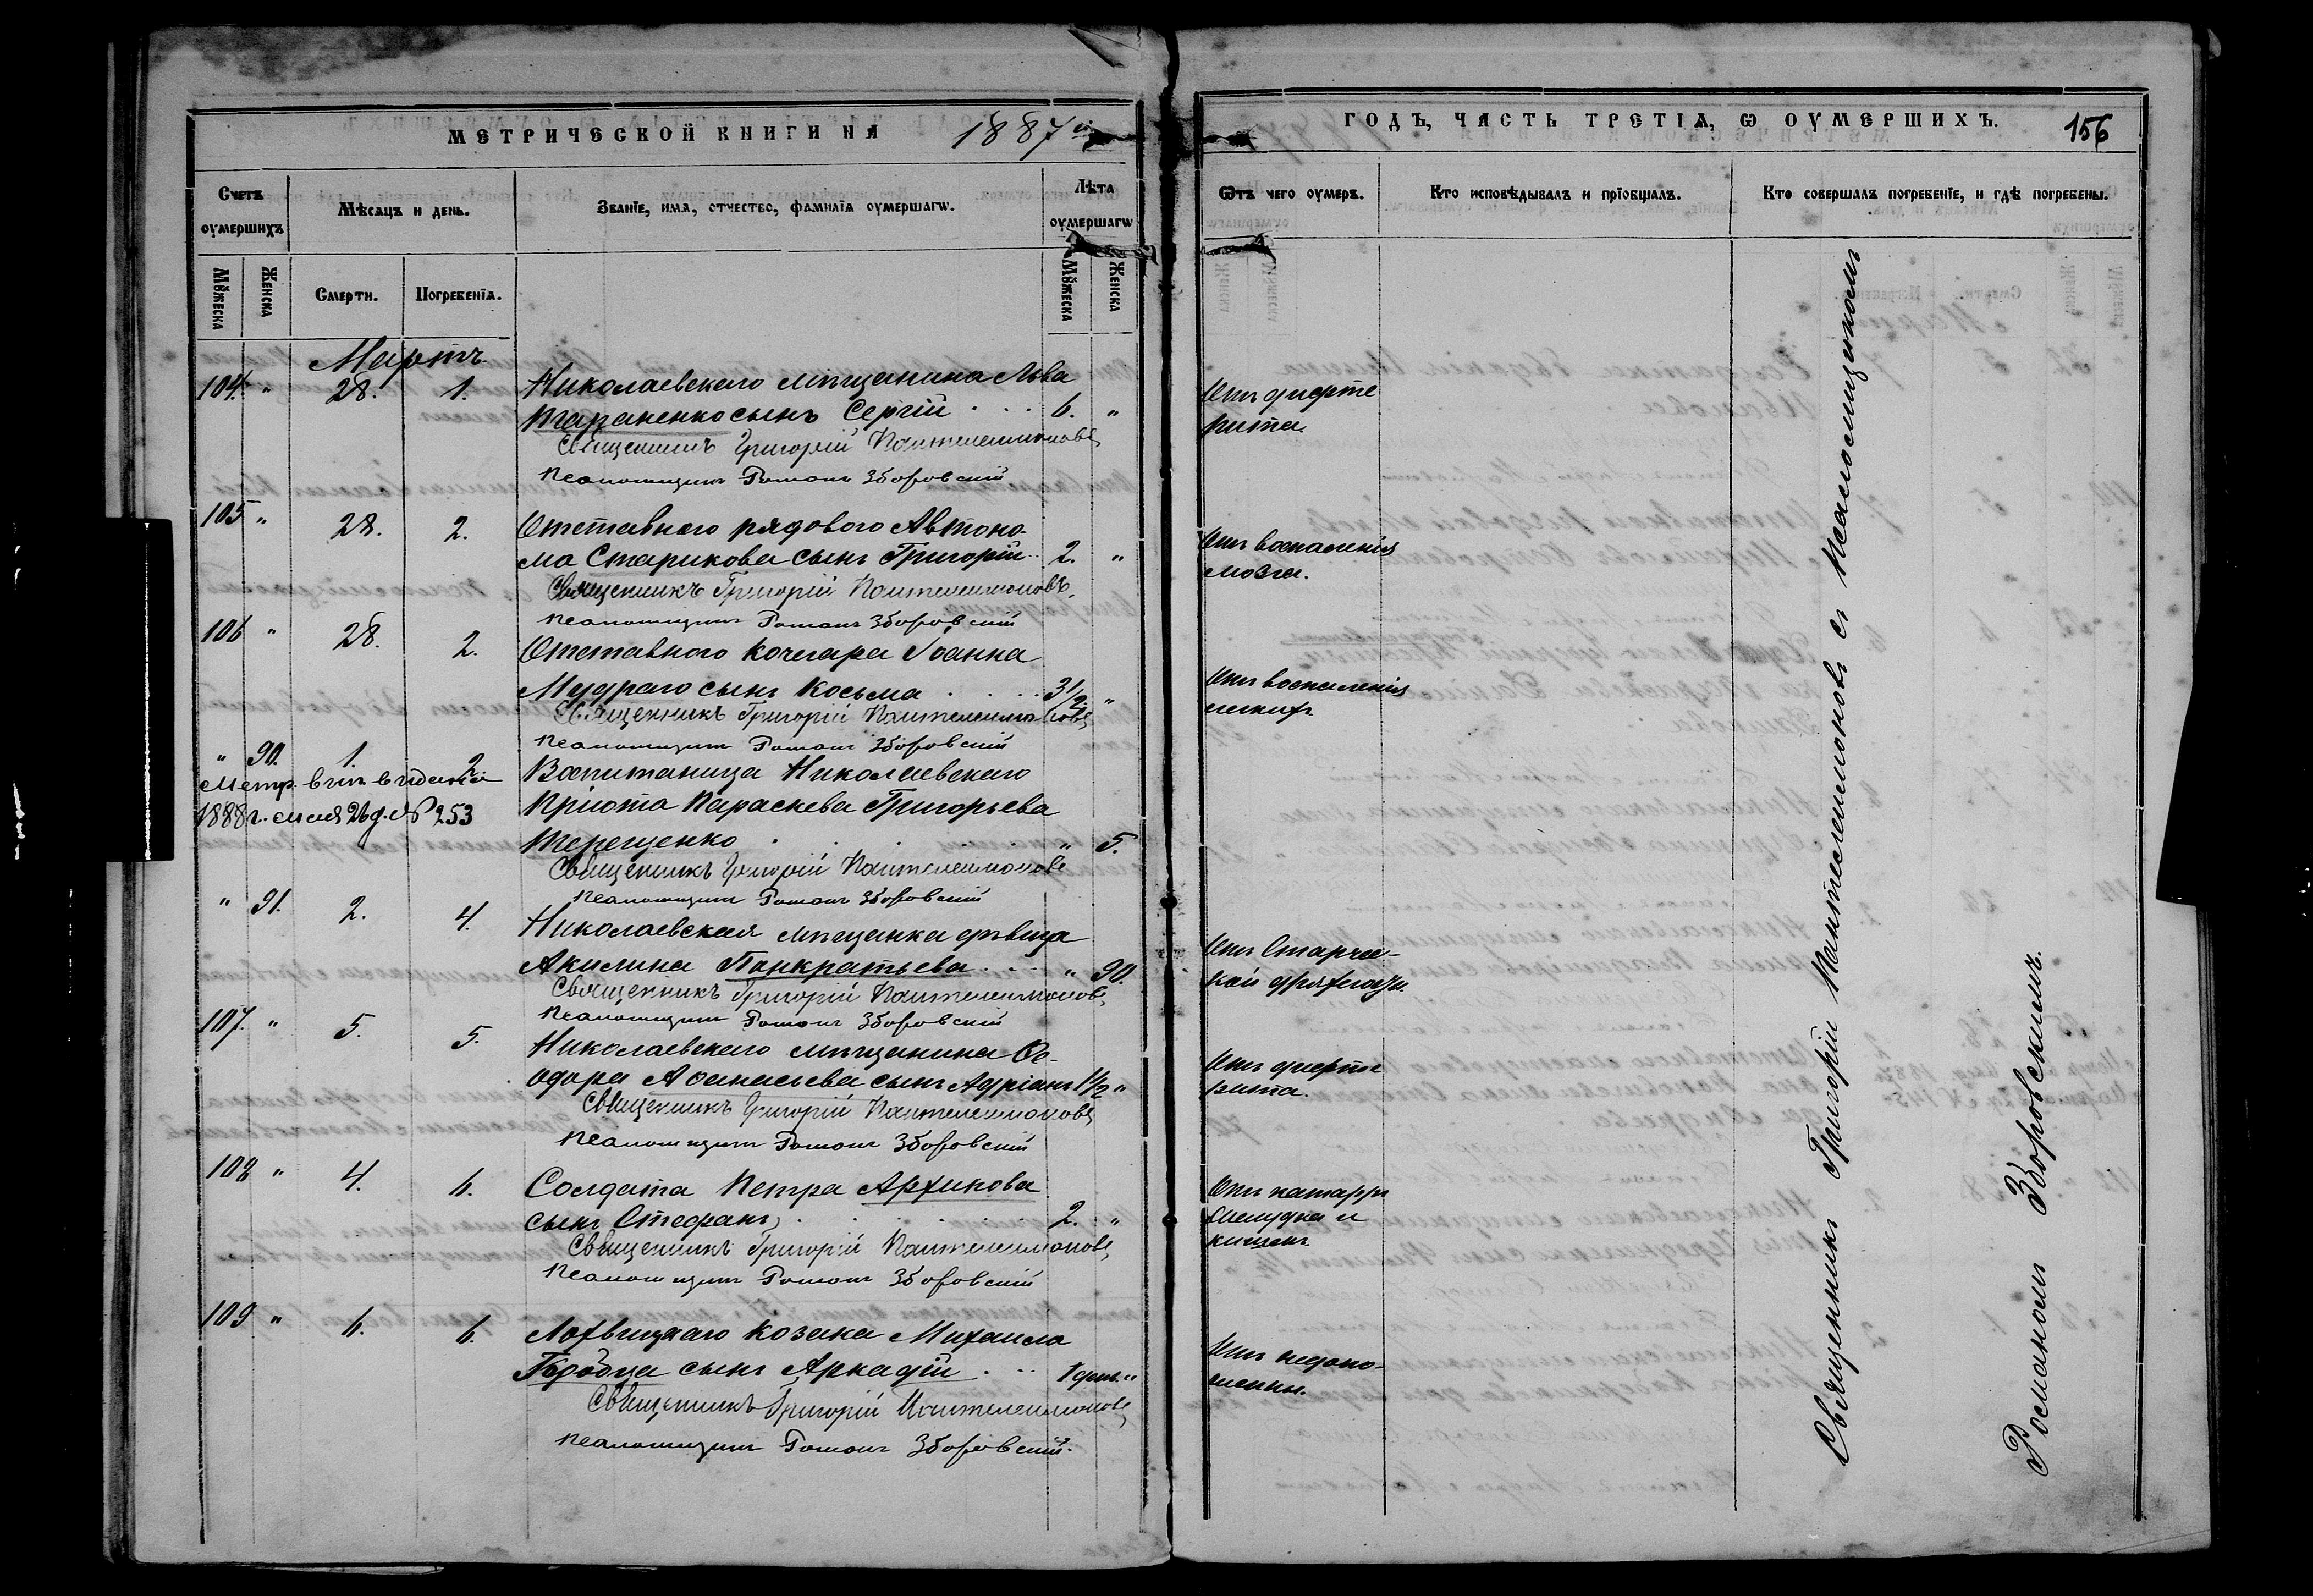 МЕТРИЧЕСКОЙ КНИГИ НА 1887й
ГОДЪ, ЧАСТЬ ТРЕТІѦ, Ѡ ОУМЕРШИХЪ. 156
Счетъ оумершихъ
Мѣсяцъ и день.
Званїе, имя, отчество, фамилїя оумершагѡ.
Лѣта оумершагѡ
Ѿтъ чего оумеръ.
Кто исповѣдывалъ и прїобщалъ.
Кто совершалъ погребенїе, и гдѣ погребены.
Мꙋжеска
Женска
Смерти.
Погребенїя.
Мꙋжеска
Женска
Мартъ
104. " 28. 1. Николаевскаго мѣщанина Льва
Тараненко сынъ Сергій 6. "
Отъ дифте
рита.
Священникъ Григорій Пантелеимоновъ
Псаломщикъ Романъ Зборовскій
105 " 28. 2. Отставного рядового Автоно-
ма Старикова сынъ Григорій 2. "
Отъ воспаленія
мозга.
Священникъ Григорій Пантелеимоновъ.
Псаломщикъ Романъ Зборовскій
106 " 28. 2. Отставного кочегара Іоанна
Мудраго сынъ Косьма 3 1/2 "
Отъ воспаленія
легкихъ
Священникъ Григорій Пантелеимоновъ
Псаломщикъ Романъ Зборовскій
" 90. 1. 2. Воспитаница Николаевскаго
Метр. вып. выдана
1888 г. мая 26 д. № 253
Пріюта Параскева Григорьева
Терещенко " 5.
Священникъ Григорій Пантелеимоновъ
Псаломщикъ Романъ Зборовскій
" 91. 2. 4. Николаевская мѣщанка дѣвица
Акилина Панкратьева " 90.
Отъ Старчес-
кой дряхлости.
Священникъ Григорій Пантелеимоновъ
Псаломщикъ Романъ Зборовскій
107. " 5. 5. Николаевскаго мѣщанина Ѳе-
одора Аѳанасьева сынъ Адріанъ 1 1/2 "
Отъ дифте
рита.
Священникъ Григорій Пантелеимоновъ
Псаломщикъ Романъ Зборовскій
108 " 4. 6. Солдата Петра Архипова
сынъ Стефанъ 2. "
Отъ катарра
желудка и
кишекъ
Священникъ Григорій Пантелеимоновъ
Псаломщикъ Романъ Зборовскій
109 " 6. 6. Лохвицкаго козака Михаила
сынъ Аркадій 1 день "
Отъ недоно-
Священникъ Григорій Пантелеимоновъ
Псаломщикъ Романъ Зборовскій.
Священникъ Григорій Пантелеимоновъ съ Псаломщикомъ
Романомъ Зборовскимъ.